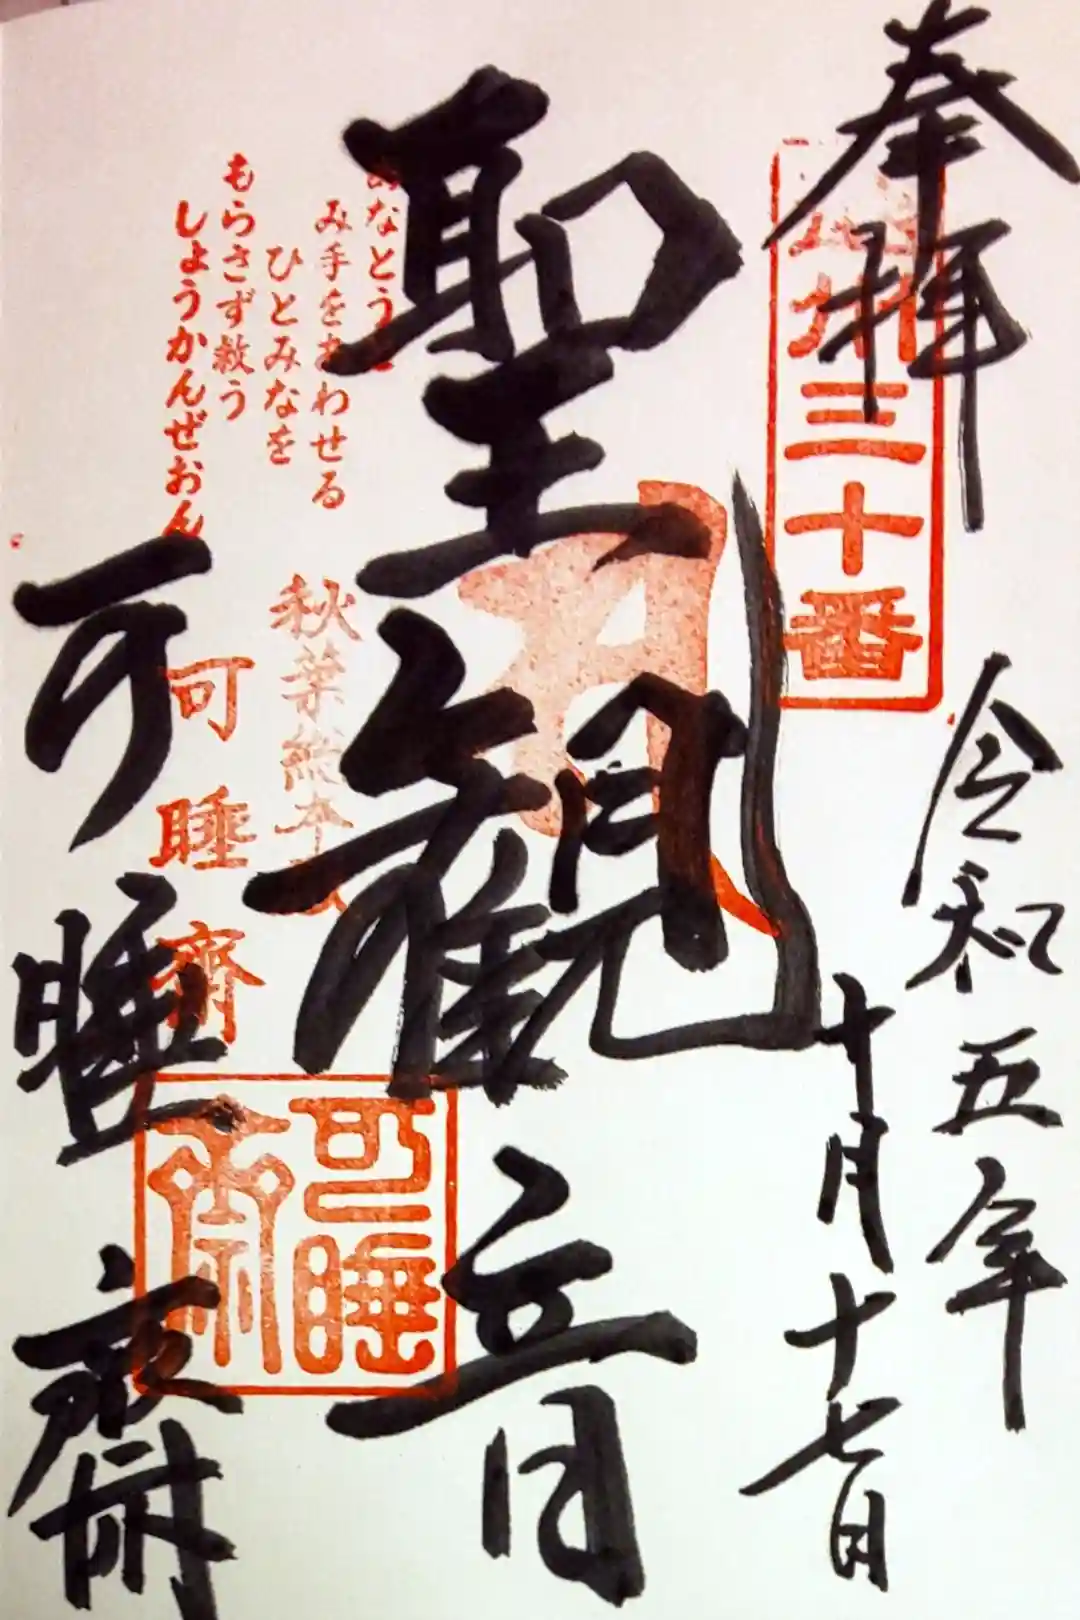 奉拝
三十番
令和五年
十月十七日
聖観音
み手をあわせる
ひとみなを
もらさず救う
しょうかんぜおん
秋葉総本
可睡齋
可睡齋
可睡齋